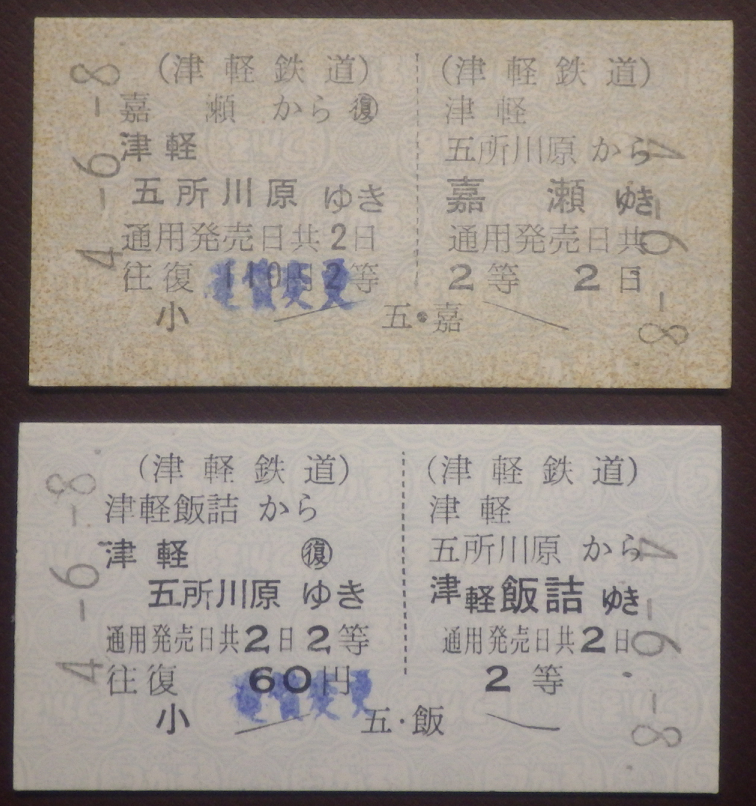 4.-6.-8
（津軽鉄道）
嘉瀬から㊝
津軽
五所川原ゆき
通用発売日共2日
往復110円2等
運賃変更
小
五・嘉
（津軽鉄道）
津軽
五所川原から
嘉瀬ゆき
通用発売日共
2等 2日
4.-6.-8
4.-6.-8.
（津軽鉄道）
津軽飯詰から
津軽 復
五所川原ゆき
通用発売日共2日2等
往復 60円
運賃変更
小
五・飯
（津軽鉄道）
津軽
五所川原から
津軽飯詰ゆき
通用発売日共2日
2等
4.-6.-8